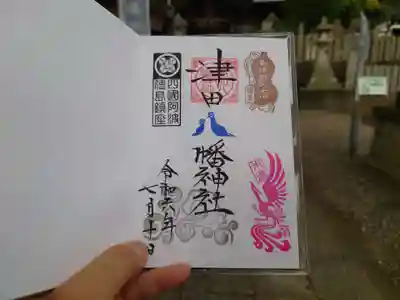 津田八幡神社
四國阿波
徳島鎮座
令和六年
七月十日